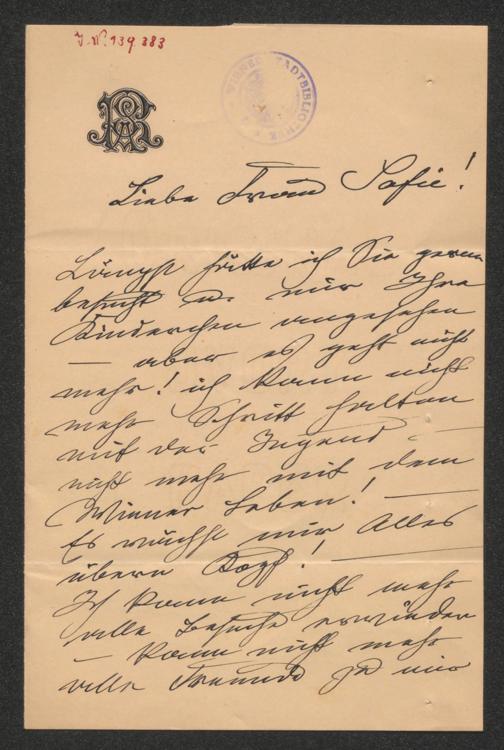 J.N. 139.383
WIENER STADTBIBLIOTHEK
Liebe Frau Sofie!
Längst hätte ich Sie gerne
besucht u. mir Ihre
Kinderchen angesehen
— aber es geht nicht
mehr! ich kann nicht
mehr Schritt halten
mit der Jugend —
nicht mehr mit dem
Wiener Leben! —
Es wächst mir Alles
übern Kopf! —
Ich kann nicht mehr
alle Besuche erwiedern
— kann nicht mehr
alle Freunde zu mir